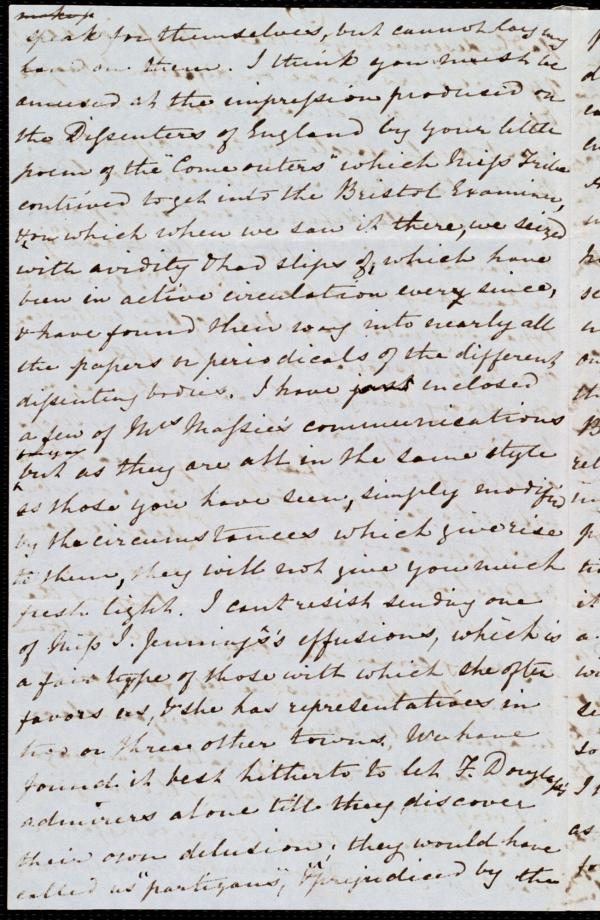 speak for themselves, but cannot lay my
hand on them. I think you must be
amused at the impression produced on
the Dissenters of England by your little
poem of the "Come outers" which Miss Tribe
contrived to get into the Bristol Examiner,
& on which when we saw it there, we seized
with avidity & had slips of, which have
been in active circulation every since,
& have found their way into nearly all
the papers or periodicals of the different
dissenting bodies. I have just inclosed
a few of Mrs Massie's communications
but as they are all in the same style
as those you have seen, simply modified
by the circumstances which give rise
to them, they will not give you much
fresh light. I cant resist sending one
of Miss I. Jennings's effusions, which is
a fair type of those with which she often
favors us, & she has representatives in
two or three other towns. We have
found it best hitherto to let F. Douglass'
admirers alone till they discover
their own delusion; they would have
called us "partizans", & "prejudiced by the